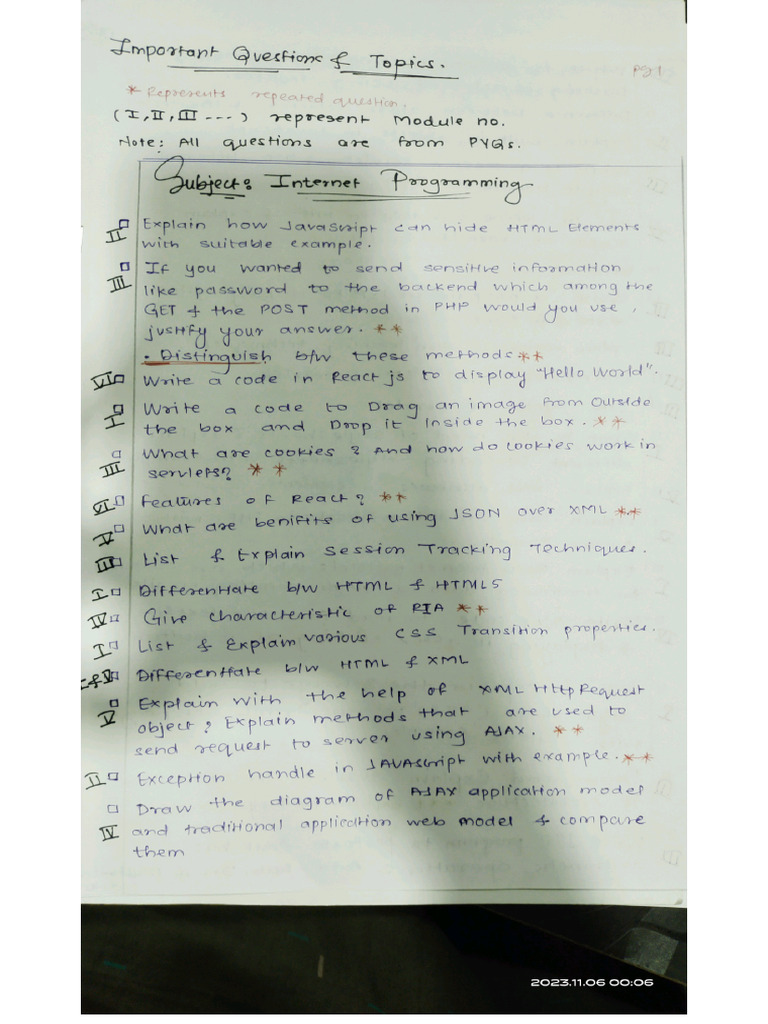 Important Questions & Topics.
Pg 1
* Represents repeated question.
(I, II, III ---) represent Module no.
Note: All questions are from PYQs.
Subject: Internet Programming
II Explain how JavaScript can hide HTML Elements
with suitable example.
III If you wanted to send sensitive information
like password to the backend which among the
GET & the POST method in PHP would you use,
justify your answer. **
• Distinguish b/w these methods **
VI Write a code in React js to display "Hello World".
Write a code to Drag an image from Outside
the box and Drop it inside the box. **
III What are cookies? And how do cookies work in
servlets? **
VI Features of React? **
V What are benifits of using JSON over XML **
III List & Explain Session Tracking Techniques.
I Differentiate b/w HTML & HTML5
IV Give characteristic of RIA **
I List & Explain various CSS Transition properties.
I & V Differentiate b/w HTML & XML
V Explain with the help of XML HttpRequest
object? Explain methods that are used to
send request to server using AJAX. **
II Exception handle in JAVAscript with example. **
IV Draw the diagram of AJAX application model
and traditional application web model & compare
them
2023.11.06 00:06